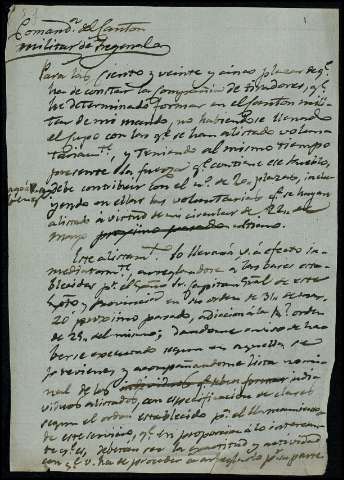 Comand.ª del Canton
militar de Fregenal
Para las ciento y veinte y cinco plazas q.e
ha de constar la Compañia de tiradores, q.e
he determinado formar en el Canton mili-
tar de mi mando, no habiendose llenado
el cupo con los q.e se han alistado volunta-
riam.te, y teniendo al mismo tiempo
presente la fuerza q.e contiene ese
debe contribuir con el n.º de 20 plazas, inclu-
yendo en ellas los voluntarios q.e se hayan
alistado á virtud de mi circular de 22 de
mayo proximo pasado
Este alistam.to lo llevará V. á efecto in-
mediatam.te, arreglandose á las bases esta-
blecidas p.r el Capitan Gral de este
Exto y provincia en su orden de 31 de
proximo pasado, adicion á la orden
de 25 del mismo; dandome aviso de ha-
berse executado segun en aquella se
previene, y acompañandome lista nomi-
nal de los indi-
viduos alistados, con especificacion de clases
segun el orden establecido p.a el llamamiento
de este servicio, q.e en proporcion á lo interesan-
te q.e es, deberan ser la exactitud y actividad
con q.e V. ha de proceder á arreglarlo p.r su parte